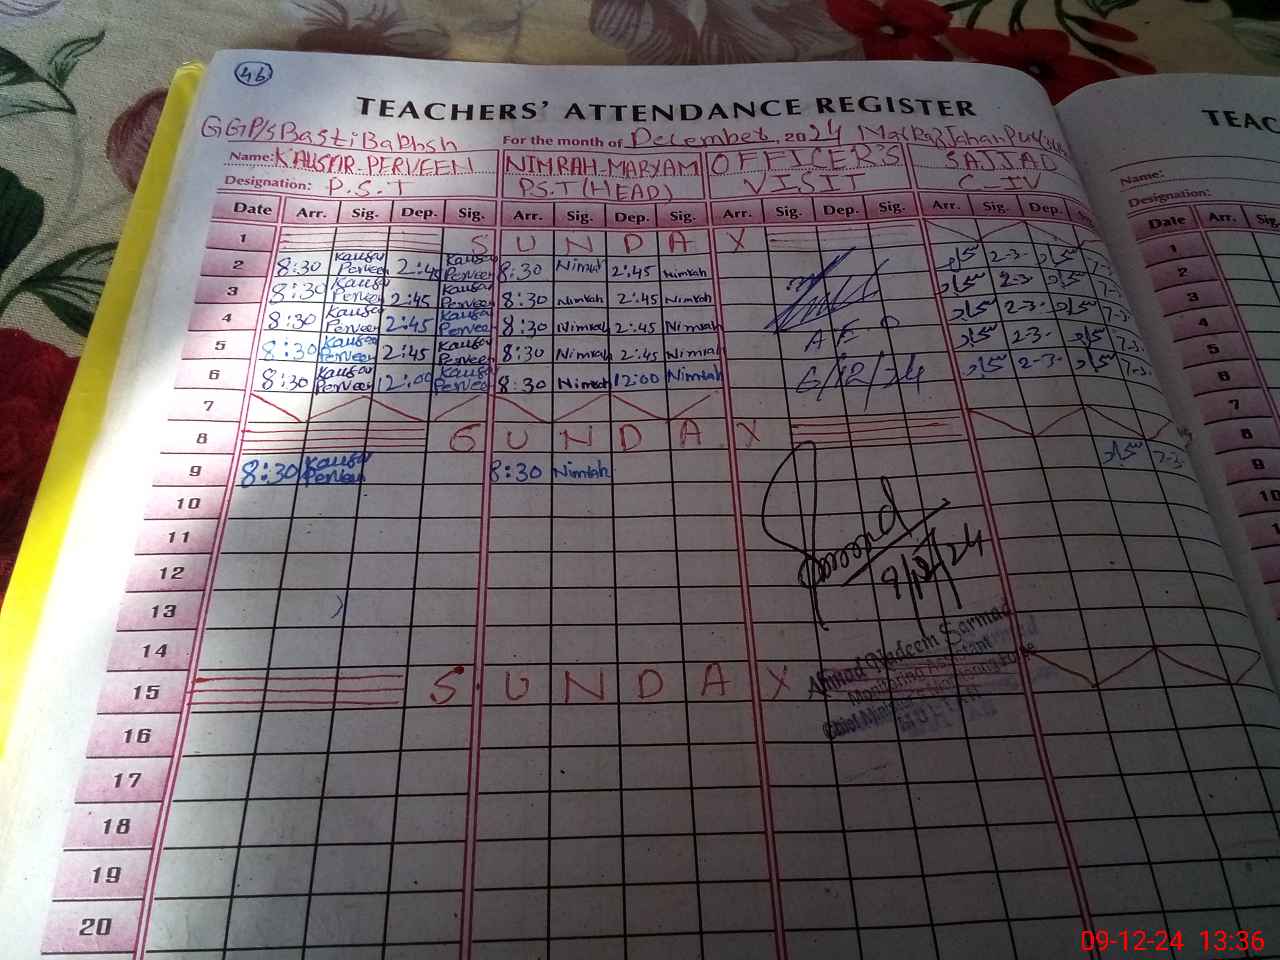 46
TEACHERS' ATTENDANCE REGISTER
TEAC
GGP/S Basti Bakhsh For the month of December, 2024
Name: KAUSAR PERVEEN NIMRAH MARYAM OFFICER'S SAJJAD
Name:
Designation: P.S.T PS.T (HEAD) VISIT C-IV
Designation:
Date Arr. Sig. Dep. Sig. Arr. Sig. Dep. Sig. Arr. Sig. Dep. Sig. Arr. Sig. Dep. Sig.
Date Arr. Sig.
1 S U N D A Y
2 8:30 Kausar Perveen 2:45 Kausar Perveen 8:30 Nimrah 2:45 Nimrah
3 8:30 Kausar Perveen 2:45 Kausar Perveen 8:30 Nimrah 2:45 Nimrah
4 8:30 Kausar Perveen 2:45 Kausar Perveen 8:30 Nimrah 2:45 Nimrah
5 8:30 Kausar Perveen 2:45 Kausar Perveen 8:30 Nimrah 2:45 Nimrah A E O
6 8:30 Kausar Perveen 12:00 Kausar Perveen 8:30 Nimrah 12:00 Nimrah 6/12/24
7
8 S U N D A Y
9 8:30 Kausar Perveen 8:30 Nimrah
10
11
12 9/12/24
13
14 Ahmad Nadeem Sarmad
Monitoring Assistant
15 S U N D A Y
16
17
18
19
20
1
2
3
4
5
6
7
8
9
10
09-12-24 13:36